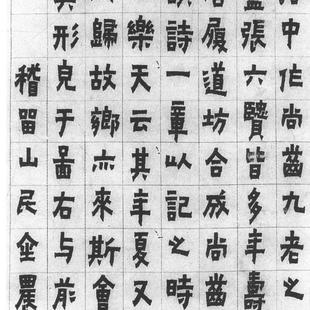 中作尚齒九老之
張六賢皆多年壽
履道坊合成尚齒
詩一章以記之時
樂天云其年夏又
歸故鄉亦來斯會
形皃于圖右与前
稽留山民金農